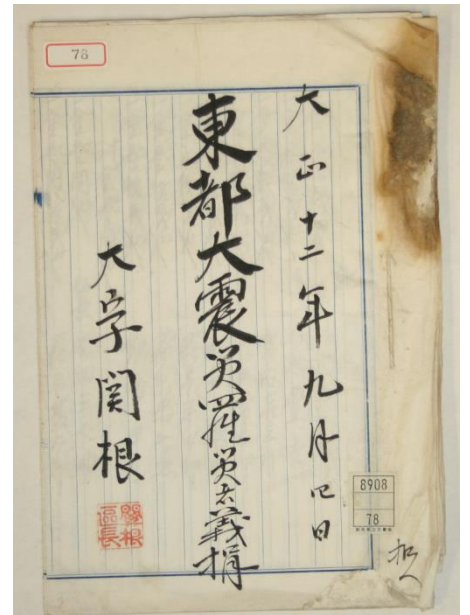 78
大正十二年九月四日
東都大震災罹災者義捐
大字関根
關根
區長
8908
78